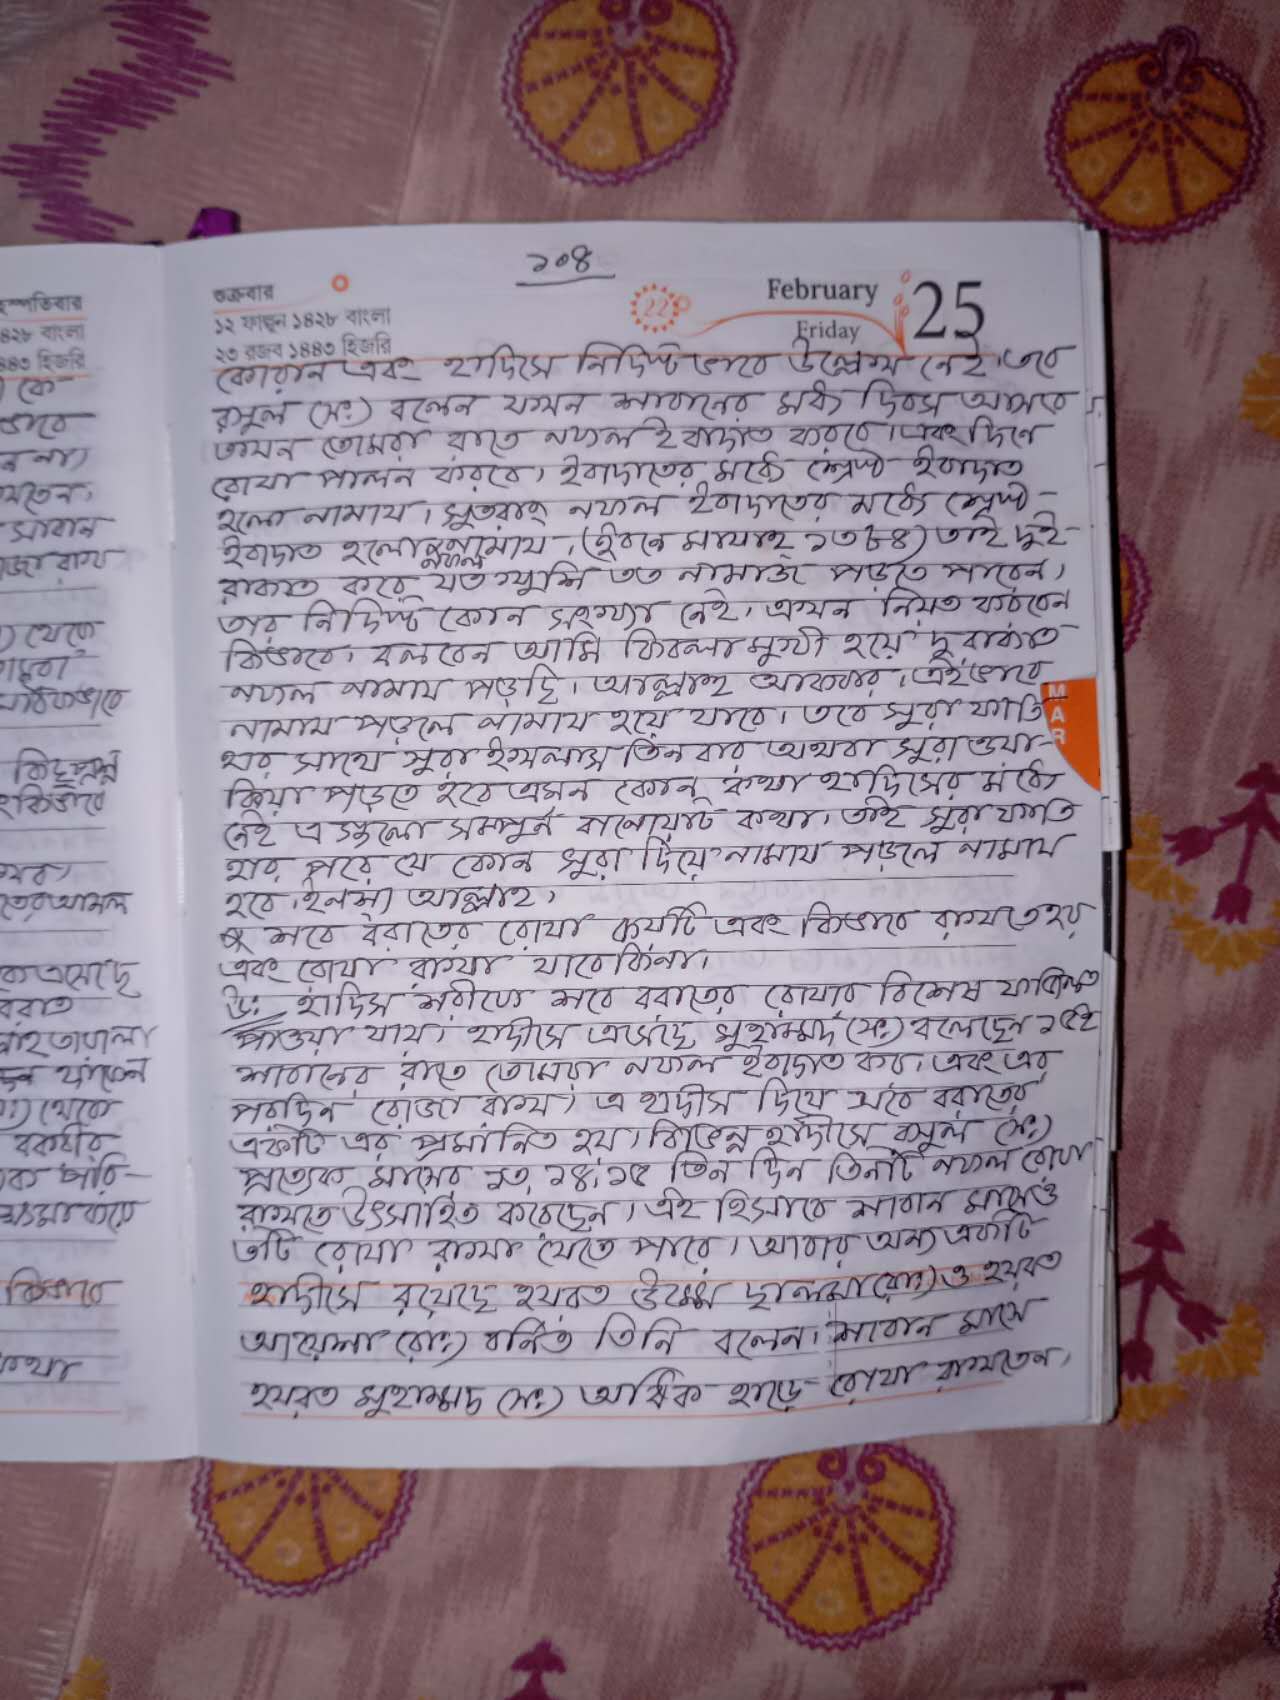 ১০৪
শুক্রবার
১২ ফাল্গুন ১৪২৮ বাংলা
২৩ রজব ১৪৪৩ হিজরি
22
February
Friday
25
কোরান এবং হাদিসে নির্দিষ্ট ভাবে উল্লেখ নেই। তবে
রসুল (সঃ) বলেন যখন শাবানের মধ্য দিবস আসবে
তখন তোমরা রাতে নফল ইবাদাত করবে। এবং দিনে
রোযা পালন করবে। ইবাদাতের মধ্যে শ্রেষ্ট ইবাদাত
হলো নামায। সুতরাং নফল ইবাদাতের মধ্যে শ্রেষ্ট-
ইবাদাত হলো নফল নামায। (ইবনে মাযাহ্ ১৩৮৪) তাই দুই-
রাকাত করে যত খুশি তত নামাজ পড়তে পারেন।
তার নির্দিষ্ট কোন সংখ্যা নেই। এখন নিয়ত করবেন
কিভাবে। বলবেন আমি কিবলা মুখী হয়ে দু রাকাত
নফল নামায পড়ছি। আল্লাহু আকবার। এইভাবে
নামায পড়লে নামায হয়ে যাবে। তবে সুরা ফাতি
হার সাথে সুরা ইখলাস তিন বার অথবা সুরা
পড়তে হবে এমন কোন কথা হাদিসের মধ্যে
নেই এ গুলো সম্পুর্ন বানোয়াট কথা। তাই সুরা ফাতি
হার পরে যে কোন সুরা দিয়ে নামায পড়লে নামায
হবে। ইনসা আল্লাহ।
শবে বরাতের রোযা কয়টি এবং কিভাবে রাখতে হয়
এবং রোযা রাখা যাবে কিনা।
উঃ হাদিস শরীফে শবে বরাতের রোযার বিশেষ ফযিলত
পাওয়া যায়। হাদীসে এসেছে মুহাম্মদ (সঃ) বলেছেন ১৫ই
শাবানের রাতে তোমরা নফল ইবাদাত কর। এবং এর
পরদিন রোজা রাখ। এ হাদীস দিয়ে শবে বরাতের
একটি এর প্রমানিত হয়। বিভিন্ন হাদীসে রসুল (সঃ)
প্রত্যেক মাসের ১৩, ১৪, ১৫ তিন দিন তিনটি নফল রোযা
রাখতে উৎসাহিত করেছেন। এই হিসাবে শাবান মাসেও
৩টি রোযা রাখা যেতে পারে। আবার অন্য একটি
হাদীসে রয়েছে হযরত উম্মে ছালমা (রাঃ) ও হযরত
আয়েশা (রাঃ) বর্নিত তিনি বলেন। শাবান মাসে
হযরত মুহাম্মদ (সঃ) অধিক হাড়ে রোযা রাখতেন।
MAR